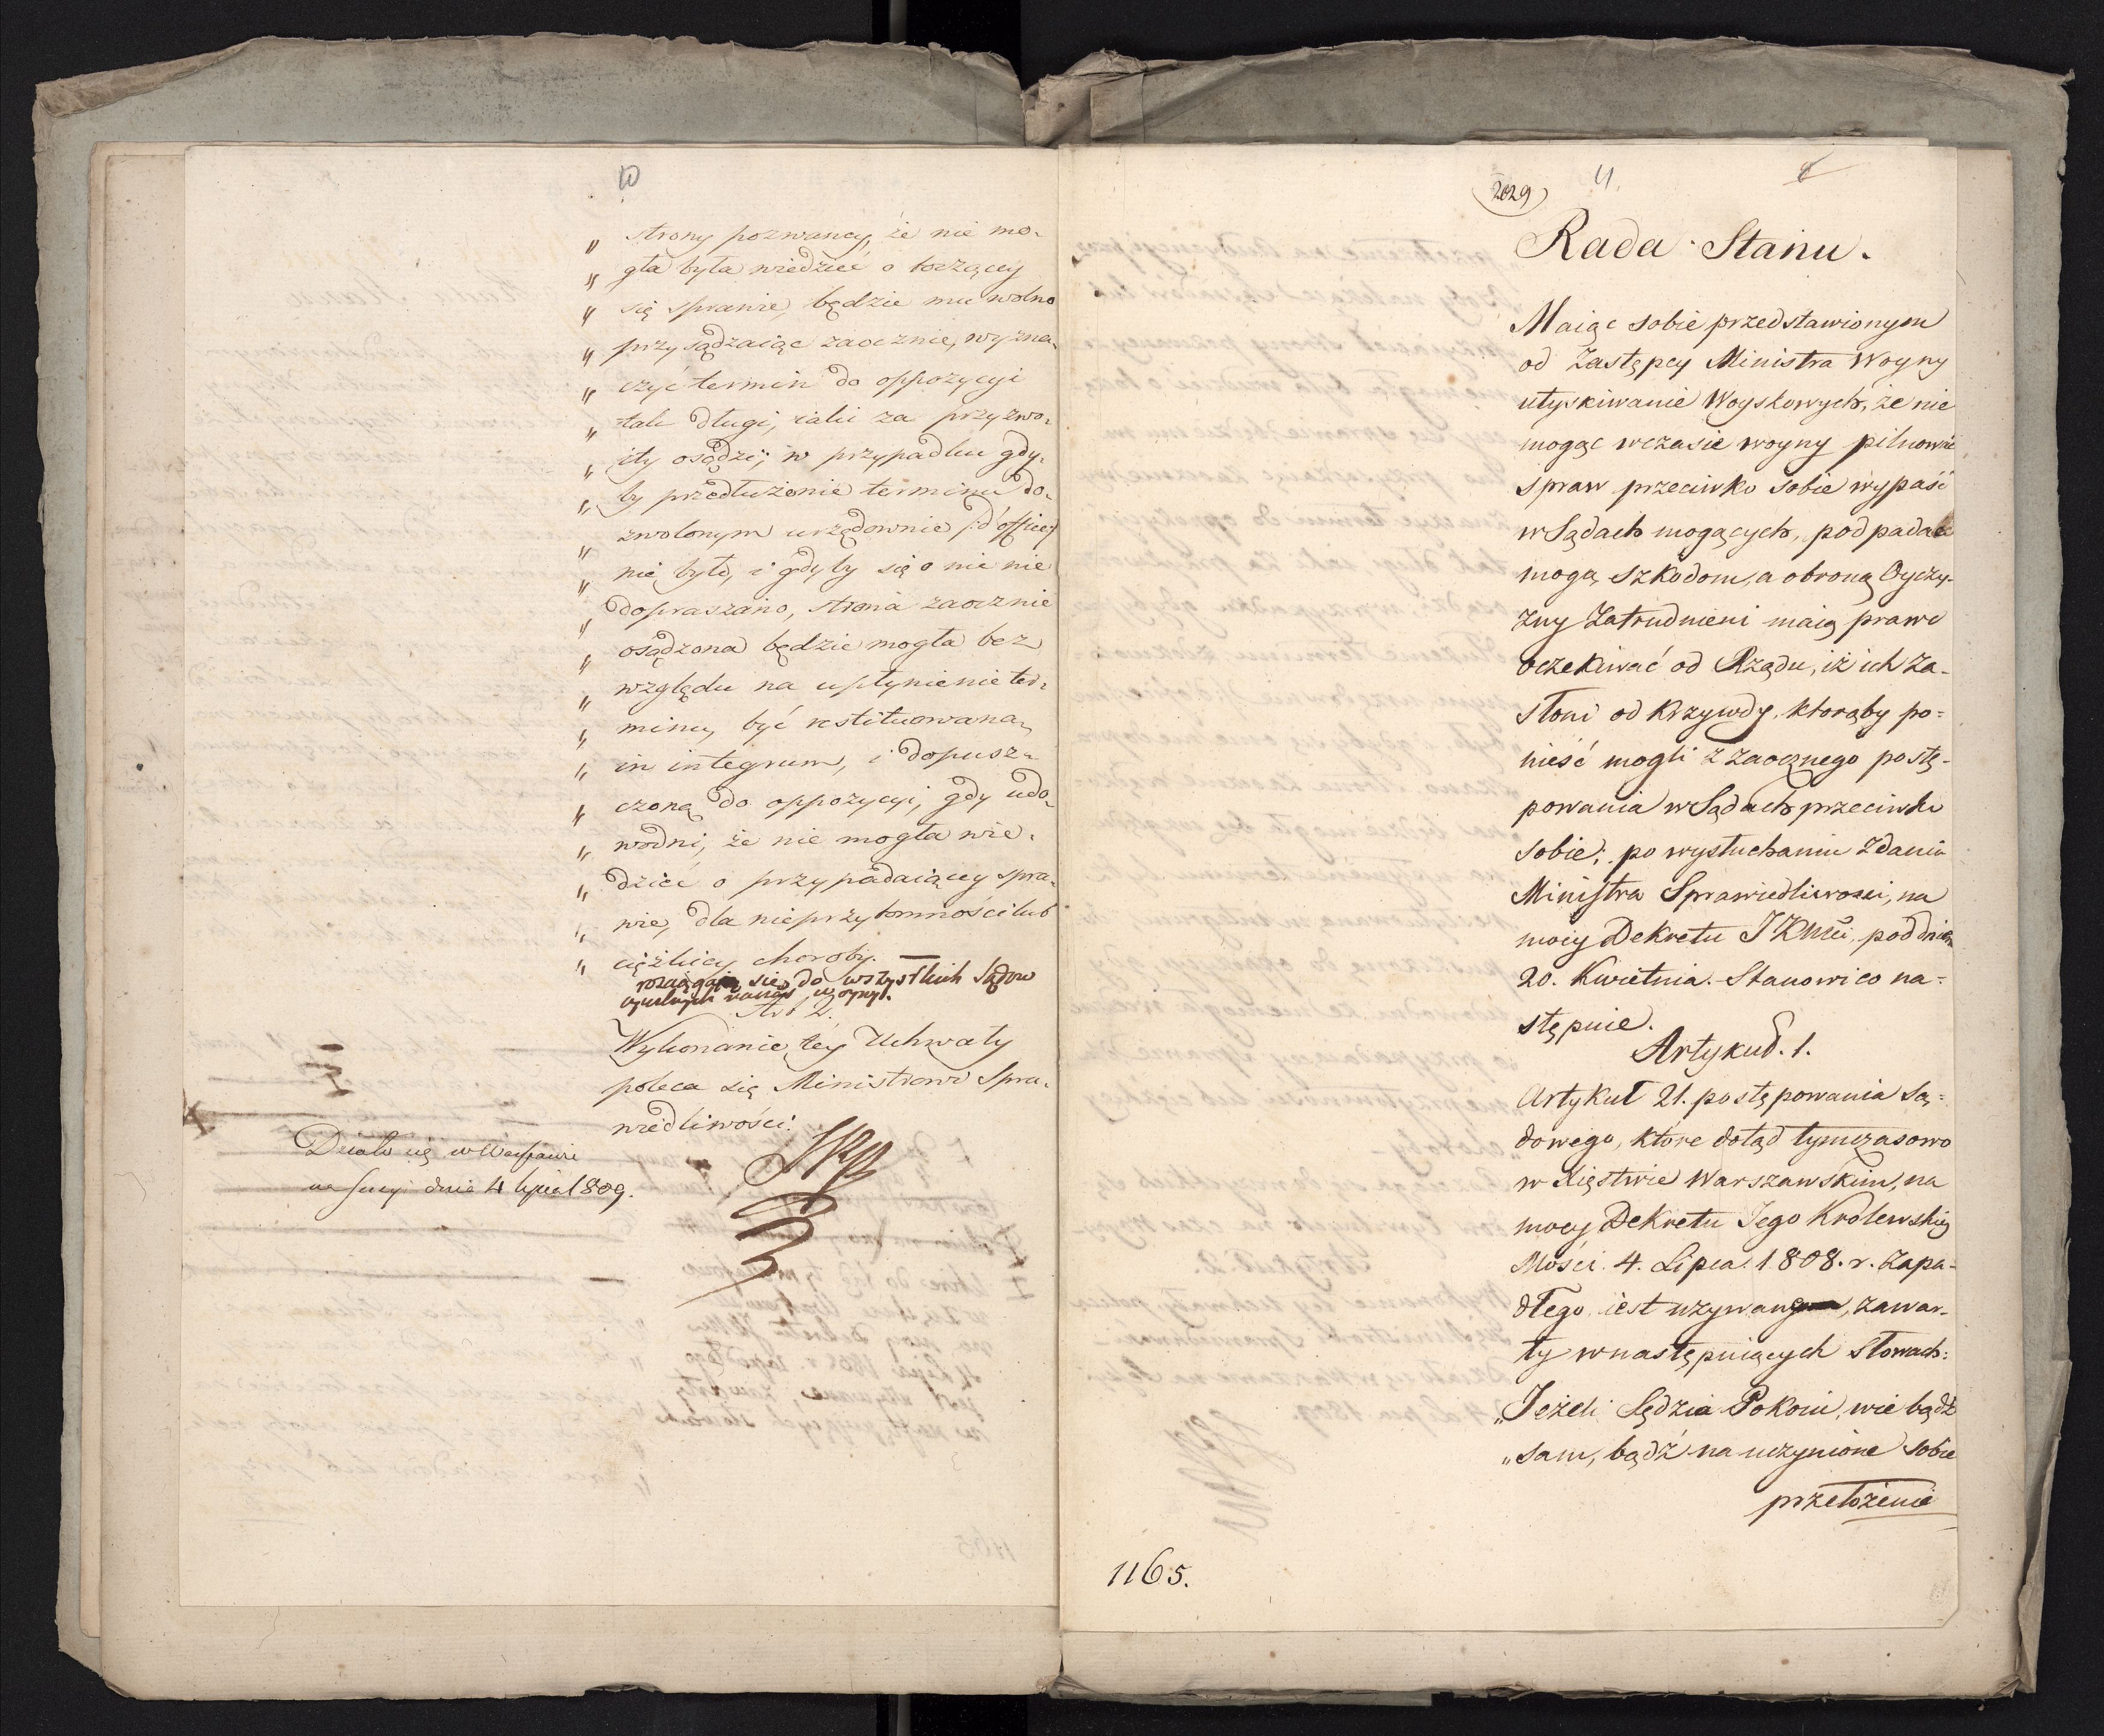 10
„ strony pozwaney, że nie mo-
„ gła była wiedzieć o toczącey
„ się sprawie, będzie mu wolno
„ przysądzaiąc zaocznie, wyzna-
„ czyć termin do oppozycyi
„ tak długi, iaki za przyzwo-
„ ity osądzi; w przypadku gdy-
„ by przedłużenie terminu do-
„ zwolonym urzędownie /:d'office:/
„ nie było, i gdyby się o nie nie
„ dopraszano, strona zaocznie
„ osądzona będzie mogła bez
„ względu na upłynienie ter-
„ minu, być restituowana
„ in integrum, i dopusz-
„ czoną do oppozycyi, gdy udo-
„ wodni, że nie mogła wie-
„ dzieć o przypadaiącey spra-
„ wie, dla nieprzytomności lub
„ ciężkiey choroby. —
rozciąga się do wszystkich Sądow
cywilnych na czas woyny.
Art 2.
Wykonanie tey Uchwały
poleca się Ministrowi Spra-
wiedliwości.
Działo się w Warszawie
na sessyi dnia 4 lipca 1809.
2029
11.
Rada Stanu.
Maiąc sobie przedstawionym
od Zastępcy Ministra Woyny
utyskiwanie Woyskowych, że nie
mogąc w czasie woyny pilnować
spraw przeciwko sobie wypaść
w Sądach mogących, podpadać
mogą szkodom, a obroną Oyczy-
zny Zatrudnieni maią prawo
oczekiwać od Rządu, iż ich za-
słoni od krzywdy, ktorąby po-
nieść mogli z zaocznego postę-
powania w Sądach przeciwko
sobie; po wysłuchaniu Zdania
Ministra Sprawiedliwosci, na
mocy Dekretu JKMci, pod dniem
20. Kwietnia. Stanowi co na-
stępuie.
Artykuł. 1.
Artykuł 21. postępowania Są-
dowego, które dotąd tymczasowo
w Xięstwie Warszawskim, na
mocy Dekretu Jego Królewskiey
Mości. 4. Lipca. 1808. r. zapa-
dłego iest używane, zawar-
ty w następuiących słowach:
„Jeżeli Sędzia Pokoiu, wie bądź
„sam, bądź na uczynione sobie
przełożenie
1165.